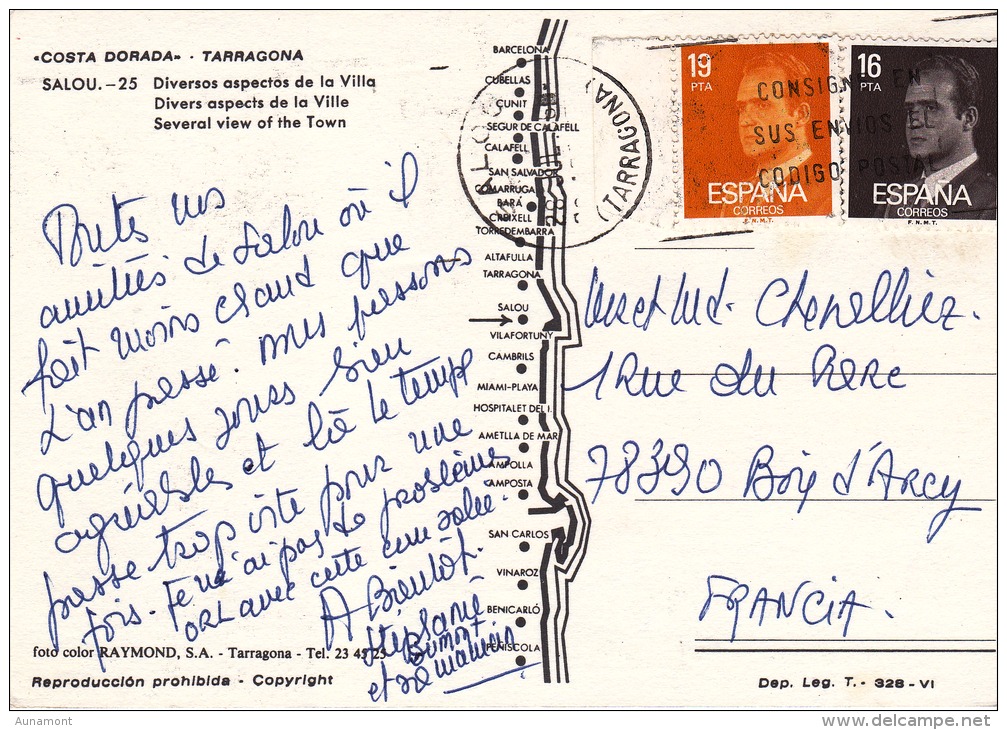 «COSTA DORADA» · TARRAGONA
SALOU. – 25 Diversos aspectos de la Villa
Divers aspects de la Ville
Several view of the Town
Toutes nos
amitiés de Salou où il
fait moins chaud que
L'an passé. nous passons
quelques jours bien
agréables et là le temps
passe trop vite pour une
fois. Je n'ai pas de problèmes
ORL avec cette eau salée.
A Bientôt.
Stéphanie
Dumont
et sa maman
foto color RAYMOND, S.A. - Tarragona - Tel. 23 45 25
Reproducción prohibida - Copyright
BARCELONA
CUBELLAS
CUNIT
SEGUR DE CALAFELL
CALAFELL
SAN SALVADOR
COMARRUGA
BARÁ
CREIXELL
TORREDEMBARRA
ALTAFULLA
TARRAGONA
SALOU
VILAFORTUNY
CAMBRILS
MIAMI-PLAYA
HOSPITALET DEL I.
AMETLLA DE MAR
AMPOLLA
AMPOSTA
SAN CARLOS
VINAROZ
BENICARLÓ
PEÑISCOLA
(TARRAGONA)
19
PTA
ESPAÑA
CORREOS
F.N.M.T.
16
PTA
ESPAÑA
CORREOS
F.N.M.T.
CONSIGNE EN
SUS ENVIOS EL
CODIGO POSTAL
1 Rue du Parc
78390 Bois d'Arcy
FRANCIA.
Dep. Leg. T. - 328 - VI
Aunamont
www.delcampe.net